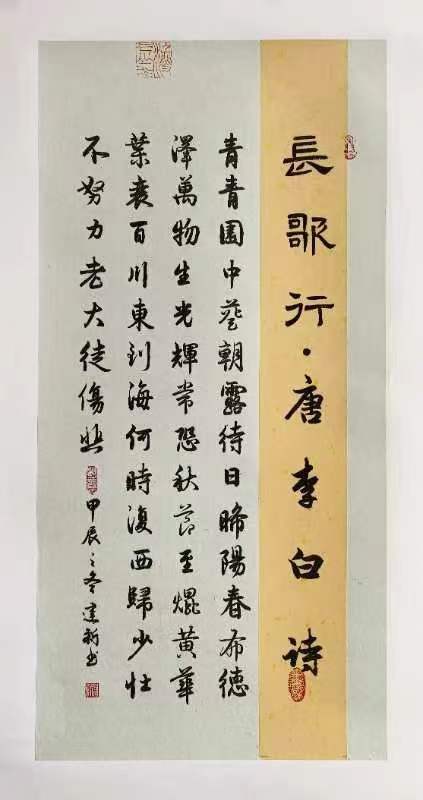 長歌行·唐李白诗
青青園中葵朝露待日晞陽春布德
澤萬物生光輝常恐秋節至焜黃華
葉衰百川東到海何時復西歸少壮
不努力老大徒傷悲
甲辰之冬建新书